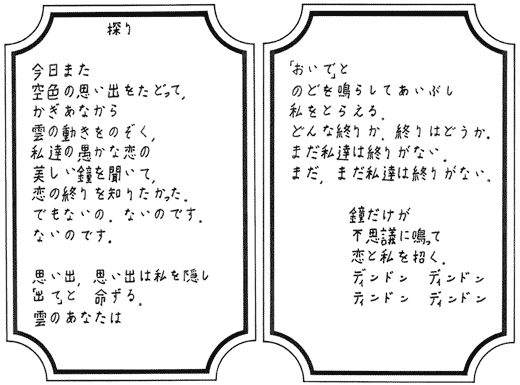 探り
今日また
空色の思い出をたどって,
かぎあなから
雲の動きをのぞく,
私達の愚かな恋の
美しい鐘を聞いて,
恋の終りを知りたかった.
でもないの. ないのです.
ないのです.
思い出, 思い出は私を隠し
「出て」と 命ずる.
雲のあなたは
「おいで」と
のどを鳴らしてあいぶし
私をとらえる.
どんな終りか, 終りはどうか.
まだ私達は終りがない.
まだ, まだ私達は終りがない.
鐘だけが
不思議に鳴って
恋と私を招く.
ディンドン ディンドン
ディンドン ディンドン